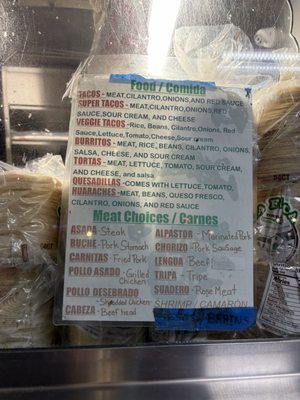 Food / Comida
TACOS - MEAT,CILANTRO,ONIONS,AND RED SAUCE
SUPER TACOS - MEAT,CILANTRO,ONIONS,RED
SAUCE,SOUR CREAM, AND CHEESE
VEGGIE TACOS -Rice, Beans, Cilantro,Onions, Red
Sauce,Lettuce,Tomato,Cheese,Sour cream
BURRITOS - MEAT, RICE, BEANS, CILANTRO, ONIONS,
SALSA, CHEESE, AND SOUR CREAM
TORTAS - MEAT, LETTUCE, TOMATO, SOUR CREAM,
AND CHEESE, and salsa
QUESADILLAS -COMES WITH LETTUCE,TOMATO,
HUARACHES- MEAT, BEANS, QUESO FRESCO,
CILANTRO, ONIONS, AND RED SAUCE
Meat Choices / Carnes
ASADA -Steak
BUCHE -Pork Stomach
CARNITAS -Fried Pork
POLLO ASADO -Grilled
Chicken
POLLO DESEBRADO
-Shredded Chicken
CABEZA -Beef head
ALPASTOR -Marinated Pork
CHORIZO -Pork Sausage
LENGUA -Beef
TRIPA -Tripe
SUADERO -Rose Meat
SHRIMP / CAMARÓN